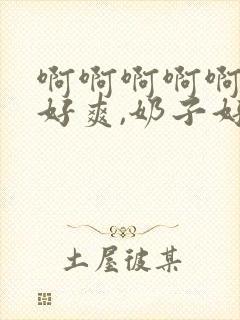 啊啊啊啊啊
好爽,奶子好
土屋彼某